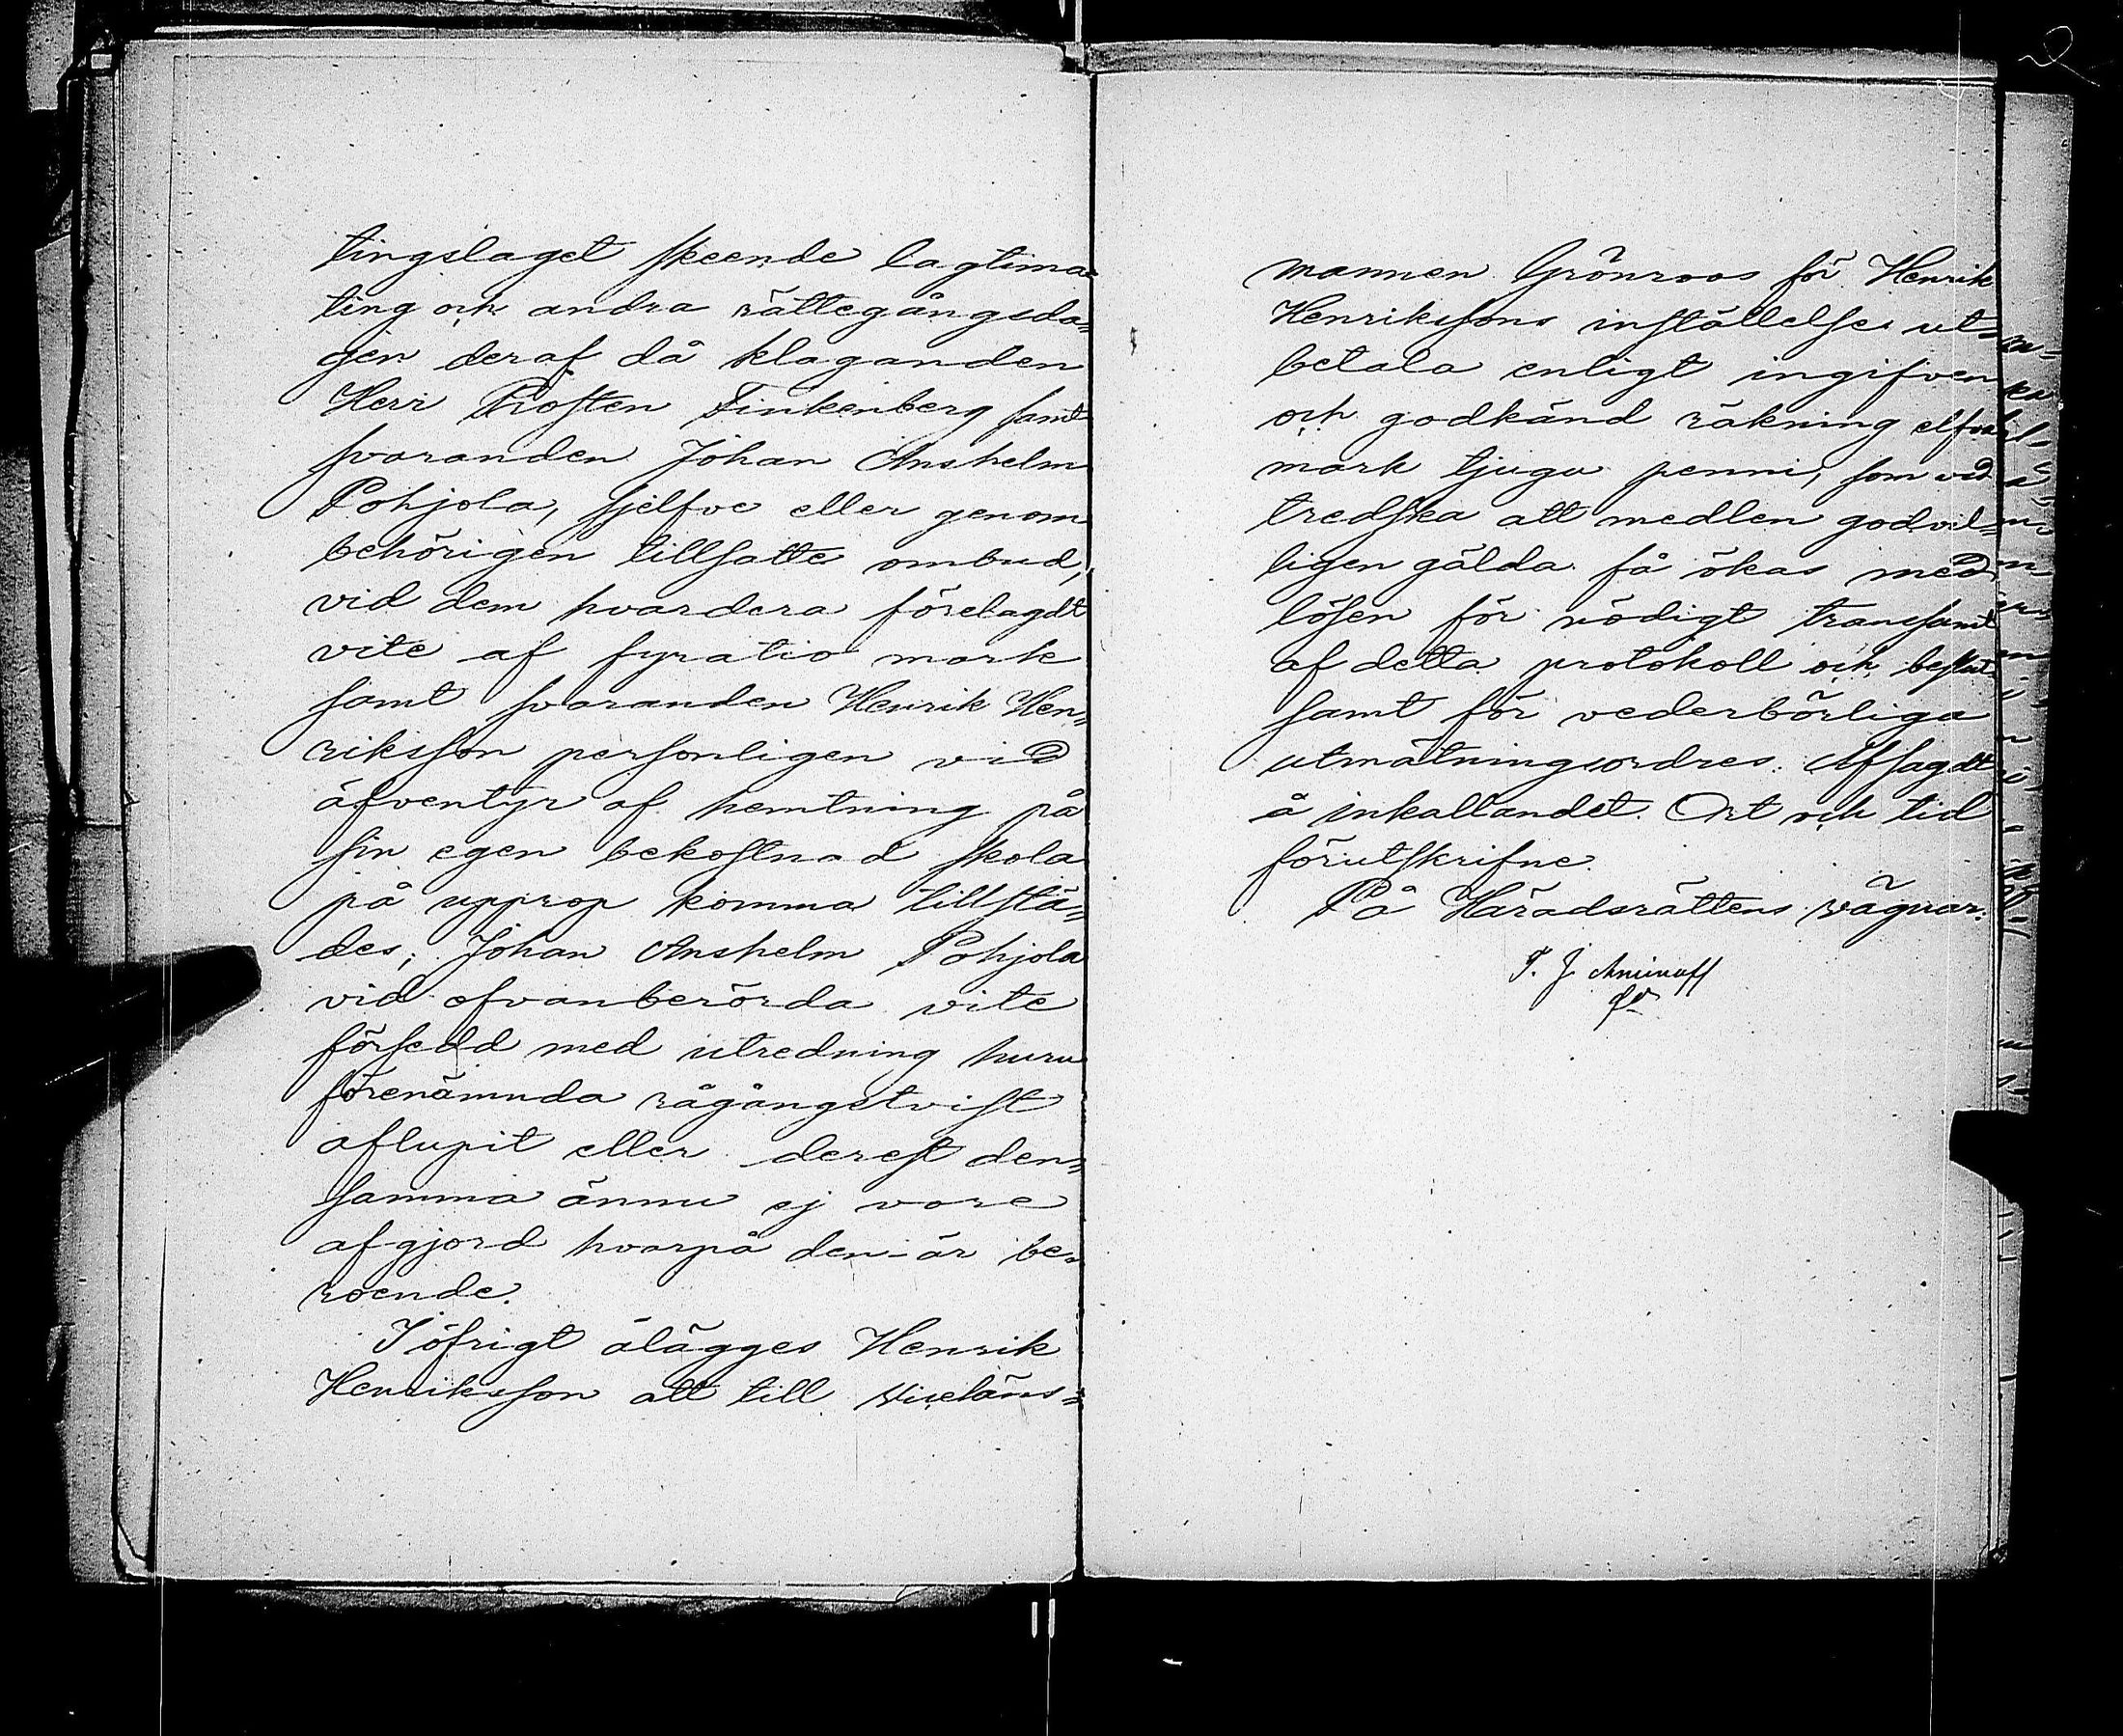 tingslaget skeende lagtima
ting och andra rättegångsda=
gen deraf då klaganden
Herr Prosten Finkenberg samt
svaranden Johan Anshelm
Pohjola, sjelfve eller genom
behörigen tillsatte ombud,
vid dem hvardera förelagdt
vite af fyratio mark
samt svaranden Henrik Hen=
riksson personligen vid
äfventyr af hemtning på
sin egen bekostnad skola
på upprop komma tillstä=
des; Johan Anshelm Pohjola
vid ofvanberörda vite
försedd med utredning huru
förenämnda rågångstvist
aflupit eller derest den=
samma ännu ej vore
afgjord hvarpå den är be=
roende.
I öfrigt ålägges Henrik
Henriksson att till viceläns=
mannen Grönroos för Henrik
Henrikssons inställelse ut=
betala enligt ingifven
och godkänd räkning elfva
mark tjugu penni, som vid
tredska att medlen godvil=
ligen gälda få ökas med
lösen för nödigt transsumt
af detta protokoll och beslut
samt för vederbörliga
utmätningsordres. Afsagdt
å inkallandet. Ort och tid
förutskrifne.
På Häradsrättens vägnar:
T. J. Aminoff